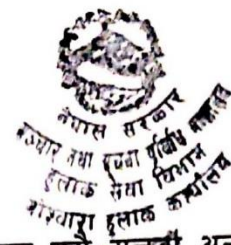 नेपाल सरकार
सञ्चार तथा सूचना प्रविधि मन्त्रालय
हुलाक सेवा विभाग
गोश्वारा हुलाक कार्यालय